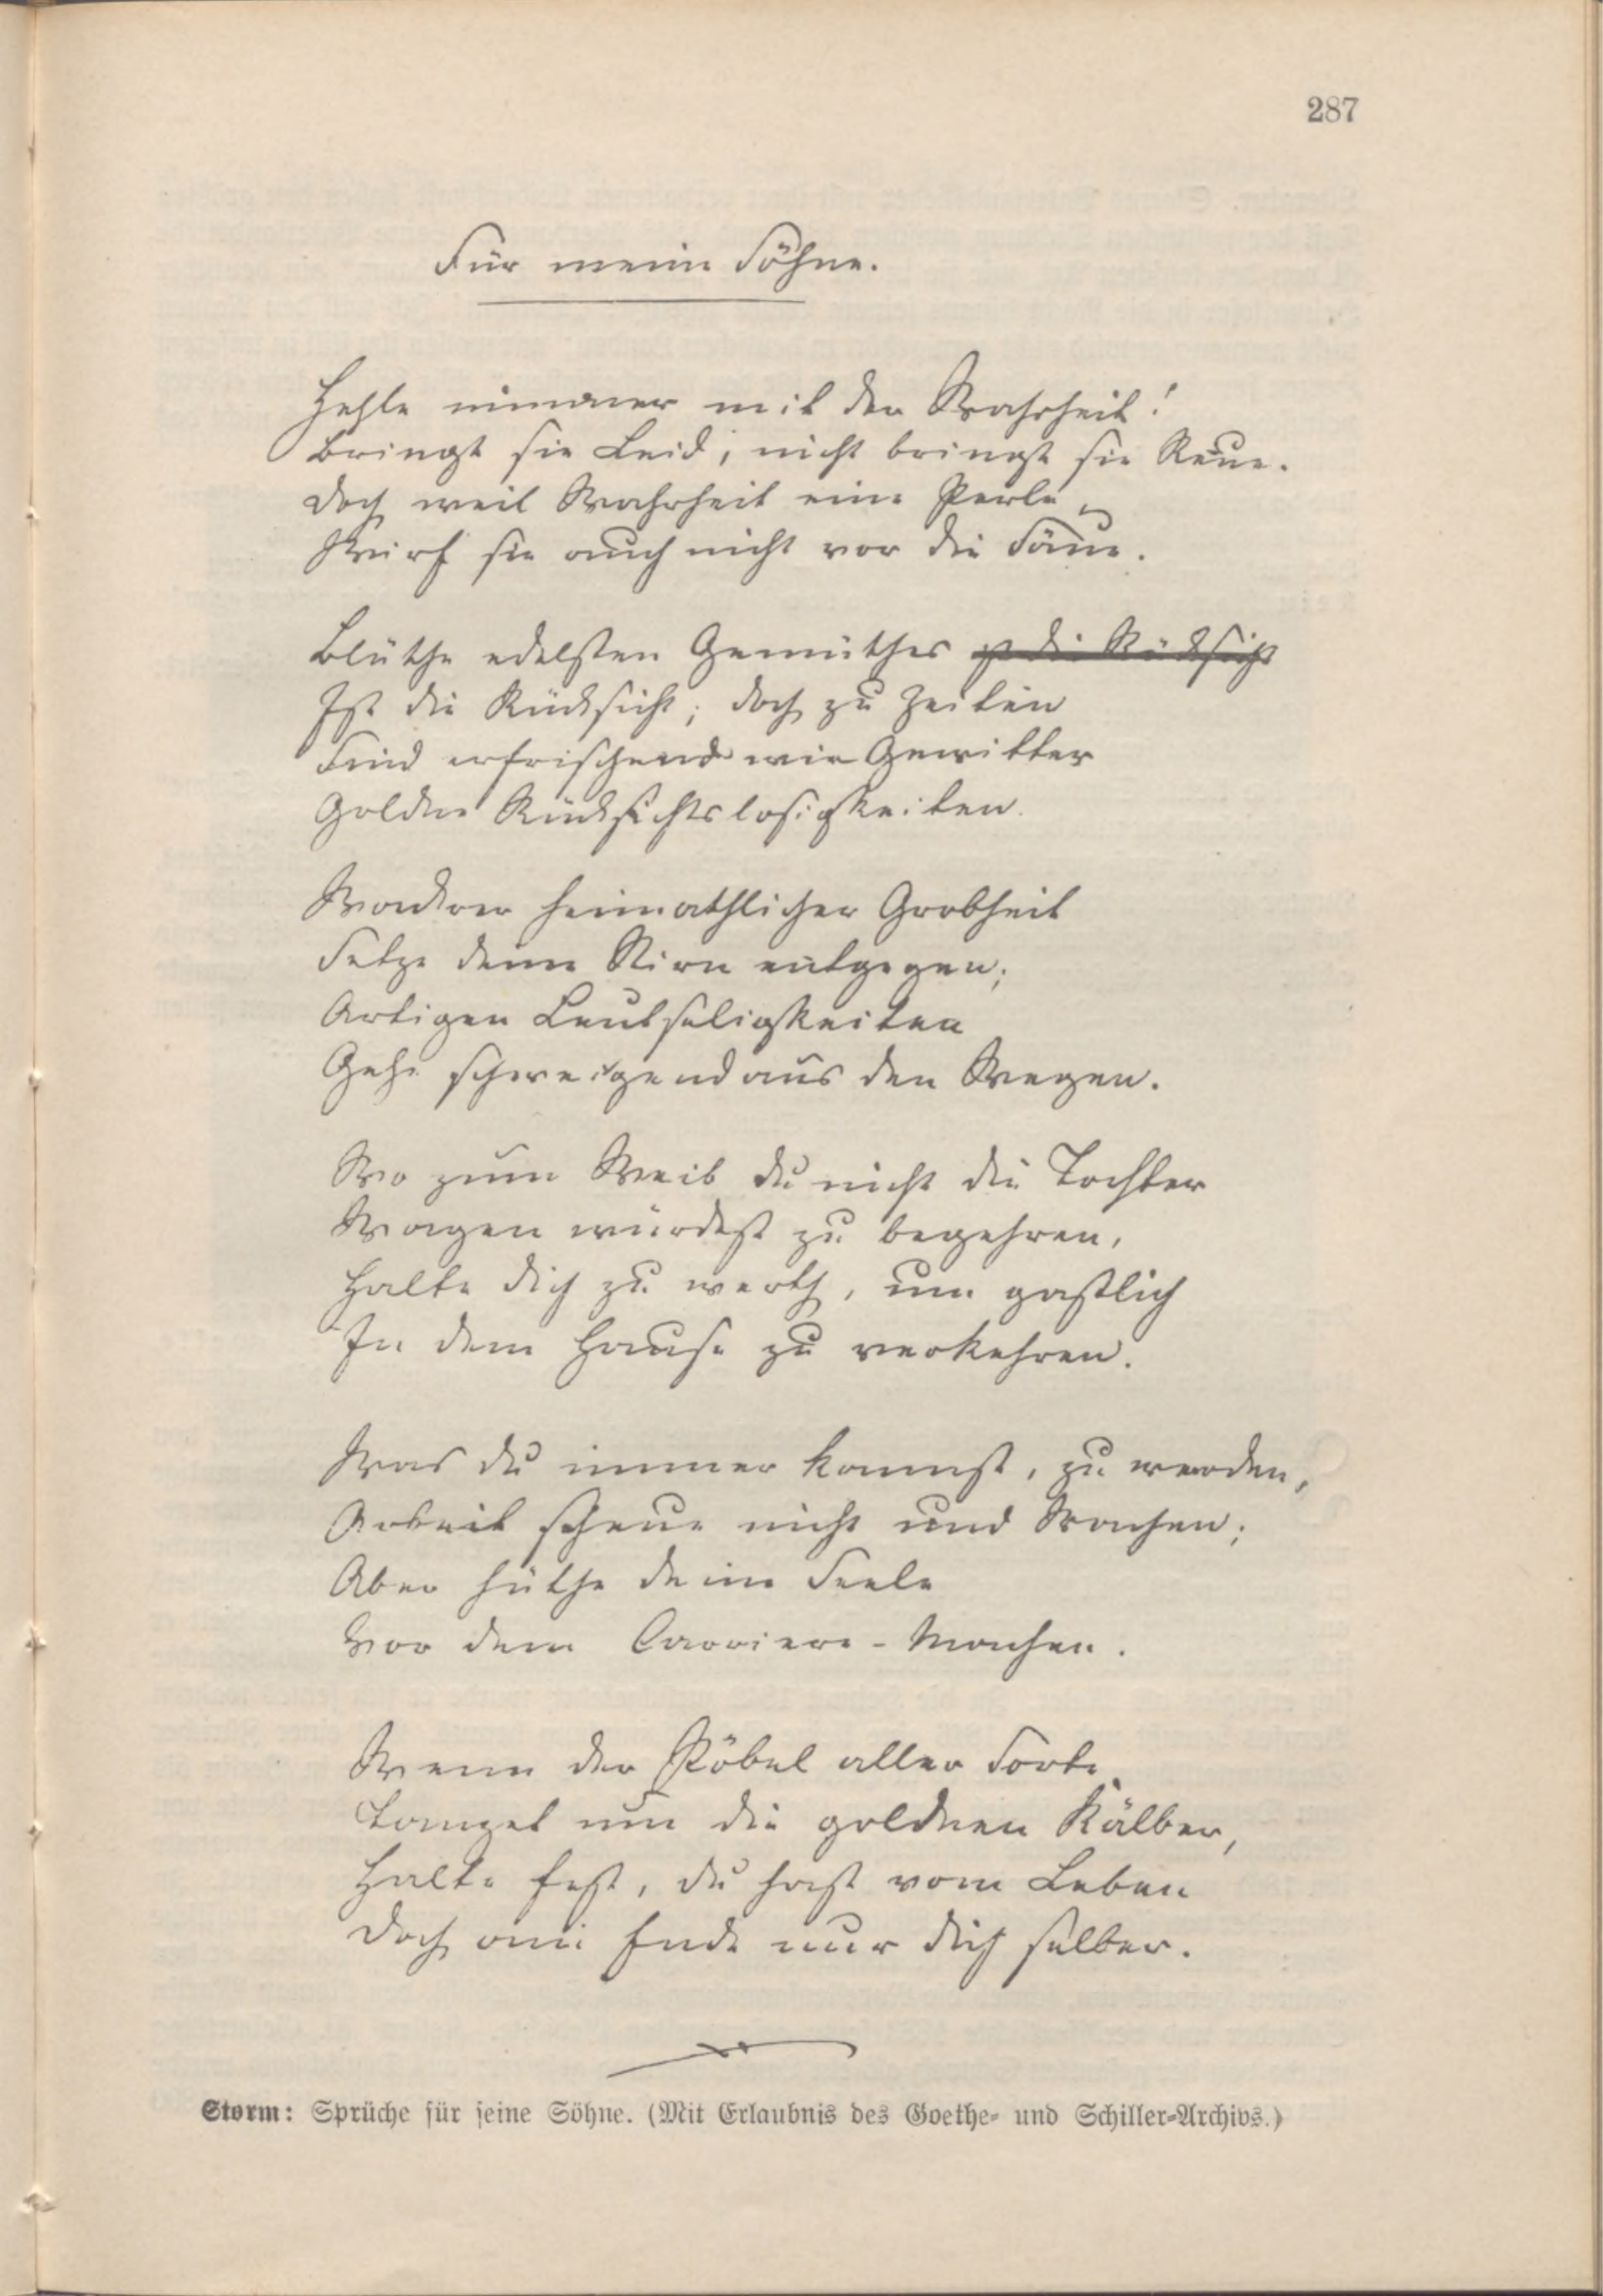 287
Für meine Söhne.
Hehle nimmer mit der Wahrheit!
Bringt sie Leid, nicht bringt sie Reue.
Doch weil Wahrheit eine Perle,
Wirf sie auch nicht vor die Säue.
Blüthe edelsten Gemüthes ist die Rücksicht
Ist die Rücksicht; doch zu Zeiten
Sind erfrischend wie Gewitter
Goldne Rücksichtslosigkeiten.
Wackrer heimathlicher Grobheit
Setze deine Stirn entgegen;
Artigen Leutseligkeiten
Gehe schweigend aus den Wegen.
Wo zum Weib du nicht die Tochter
Wagen würdest zu begehren,
Halte dich zu werth, um gastlich
In dem Hause zu verkehren.
Was du immer kannst, zu werden,
Arbeit scheue nicht und Wachen;
Aber hüthe deine Seele
Vor dem Carriere-Machen.
Wenn der Pöbel aller Sorte
Tanzet um die goldnen Kälber,
Halte fest, du hast vom Leben
Doch am Ende nur dich selber.
Storm: Sprüche für seine Söhne. (Mit Erlaubnis des Goethe- und Schiller-Archivs.)